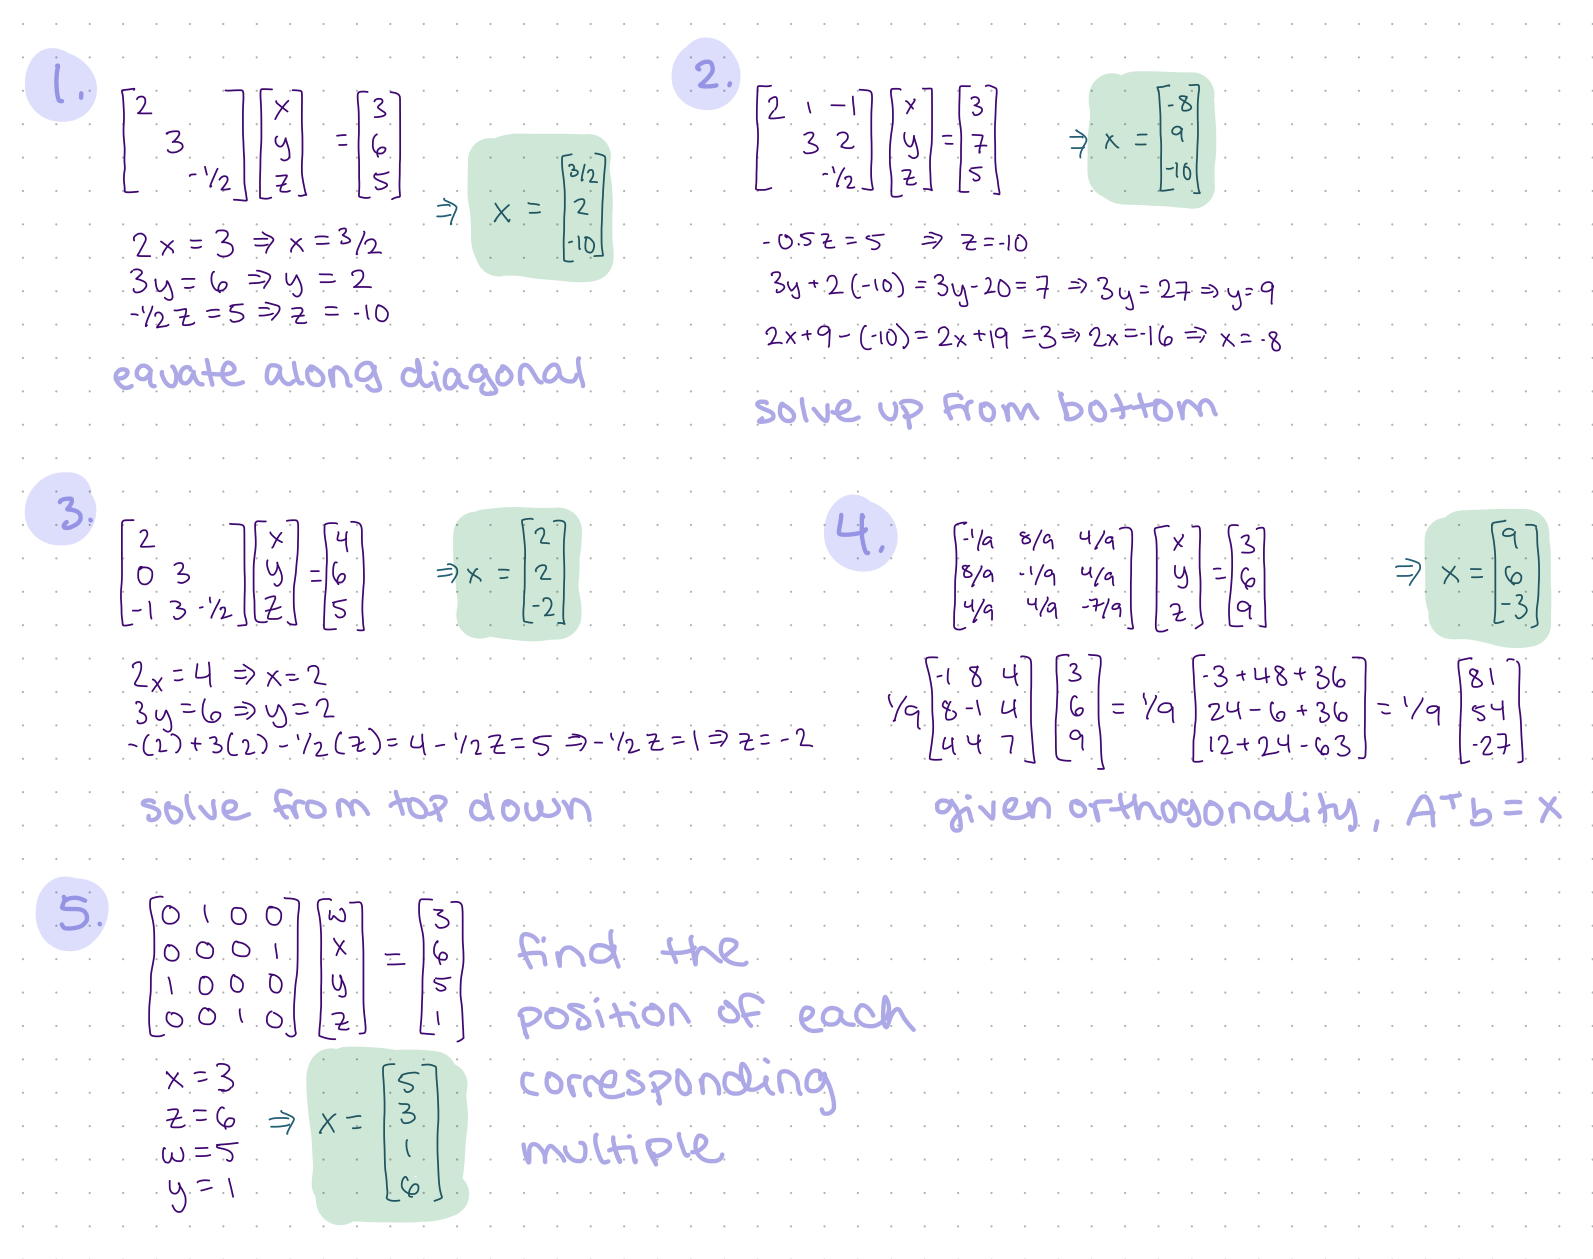 1.
[2
3
-1/2] [x
y
z] = [3
6
5]
⇒ x = [3/2
2
-10]
2x = 3 ⇒ x = 3/2
3y = 6 ⇒ y = 2
-1/2 z = 5 ⇒ z = -10
equate along diagonal
2.
[2 1 -1
3 2
-1/2] [x
y
z] = [3
7
5]
⇒ x = [-8
9
-10]
-0.5z = 5 ⇒ z = -10
3y + 2(-10) = 3y - 20 = 7 ⇒ 3y = 27 ⇒ y = 9
2x + 9 - (-10) = 2x + 19 = 3 ⇒ 2x = -16 ⇒ x = -8
solve up from bottom
3.
[2
0 3
-1 3 -1/2] [x
y
z] = [4
6
5]
⇒ x = [2
2
-2]
2x = 4 ⇒ x = 2
3y = 6 ⇒ y = 2
-(2) + 3(2) - 1/2(z) = 4 - 1/2 z = 5 ⇒ -1/2 z = 1 ⇒ z = -2
solve from top down
4.
[-1/9 8/9 4/9
8/9 -1/9 4/9
4/9 4/9 -7/9] [x
y
z] = [3
6
9]
⇒ x = [9
6
-3]
1/9 [-1 8 4
8 -1 4
4 4 7] [3
6
9] = 1/9 [-3 + 48 + 36
24 - 6 + 36
12 + 24 - 63] = 1/9 [81
54
-27]
given orthogonality, Aᵀb = x
5.
[0 1 0 0
0 0 0 1
1 0 0 0
0 0 1 0] [w
x
y
z] = [3
6
5
1]
x = 3
z = 6
w = 5
y = 1
⇒ x = [5
3
1
6]
find the
position of each
corresponding
multiple